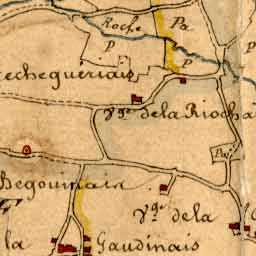 Roche
Pa
P
P
echequeriais
Vge. de la Riocha
Pa
Begouinais
Vge. de la
la
Gaudinais